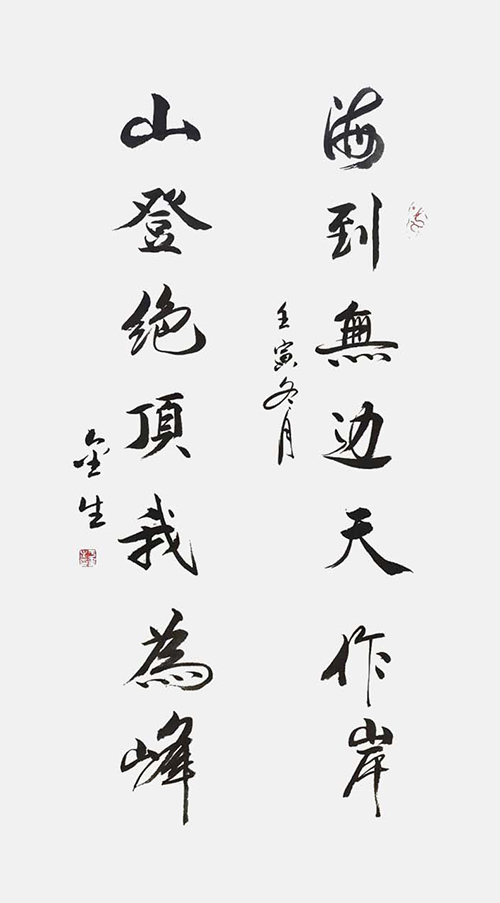 海到無边天作岸
壬寅冬月
山登绝頂我為峰
金生